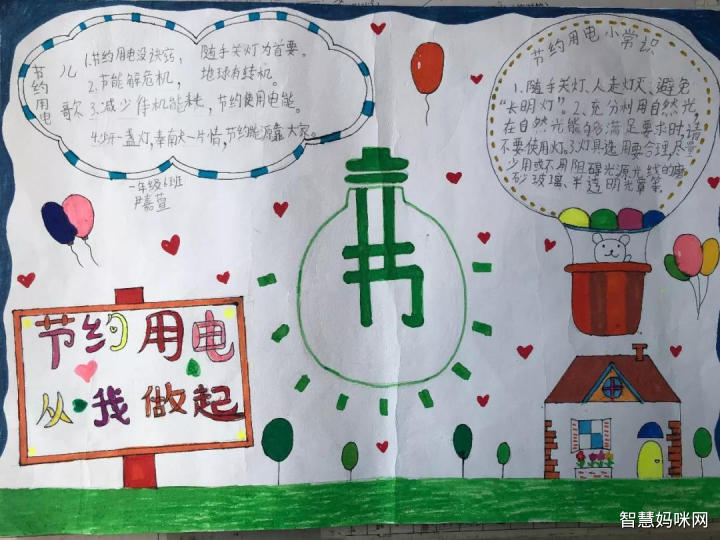 节约用电
儿歌
1.节约用电没诀窍, 随手关灯为首要。
2.节能解危机, 地球有转机。
3.减少待机能耗, 节约使用电能。
4.少开一盏灯,奉献一片情,节约能源靠大家。
一年级6班
节约用电小常识
1.随手关灯、人走灯灭、避免
“长明灯” 2.充分利用自然光,
在自然光能够满足要求时,请
不要使用灯。3.灯具选用要合理,尽量
少用或不用阻碍光源光线的磨
砂玻璃、半透明光罩等
节约用电
从我做起
智慧妈咪网